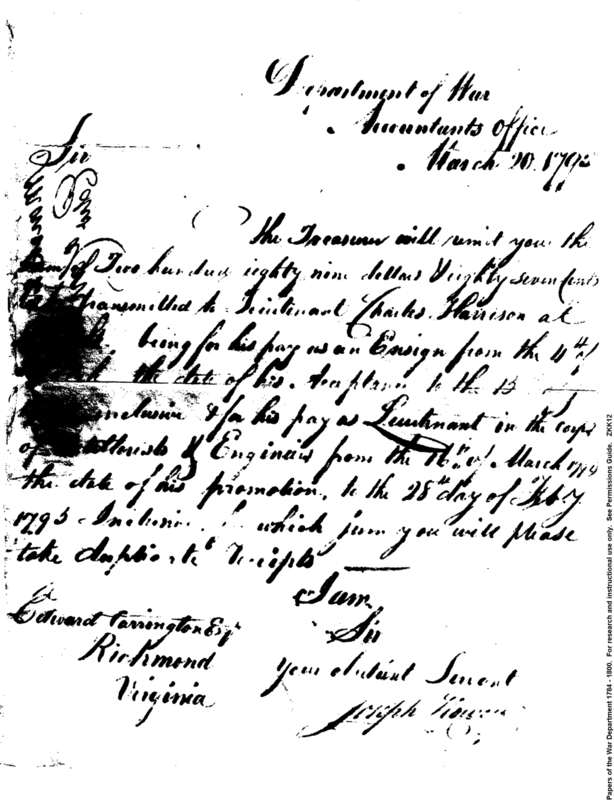 Department of War
Accountants Office
March 20. 1795
Sir
the Treasurer will remit you the
sum of Two hundred eighty nine dollars & eighty seven Cents
to be transmitted to Lieutenant Charles Harrison at
being for his pay as an Ensign from the 4th
the date of his Acceptance to the 15
inclusive & for his pay as Lieutenant in the corps
of Artillerists & Engineers from the 16th of March 1794
the date of his promotion, to the 28th day of Feby
1795 Inclusive, which sum you will please
take duplicate receipts
I am
Sir
Your obedient Servant
Joseph Howell
Edward Carrington Esqr
Richmond
Virginia
Papers of the War Department 1784 - 1800. For research and instructional use only. See Permissions Guide. ZKK12